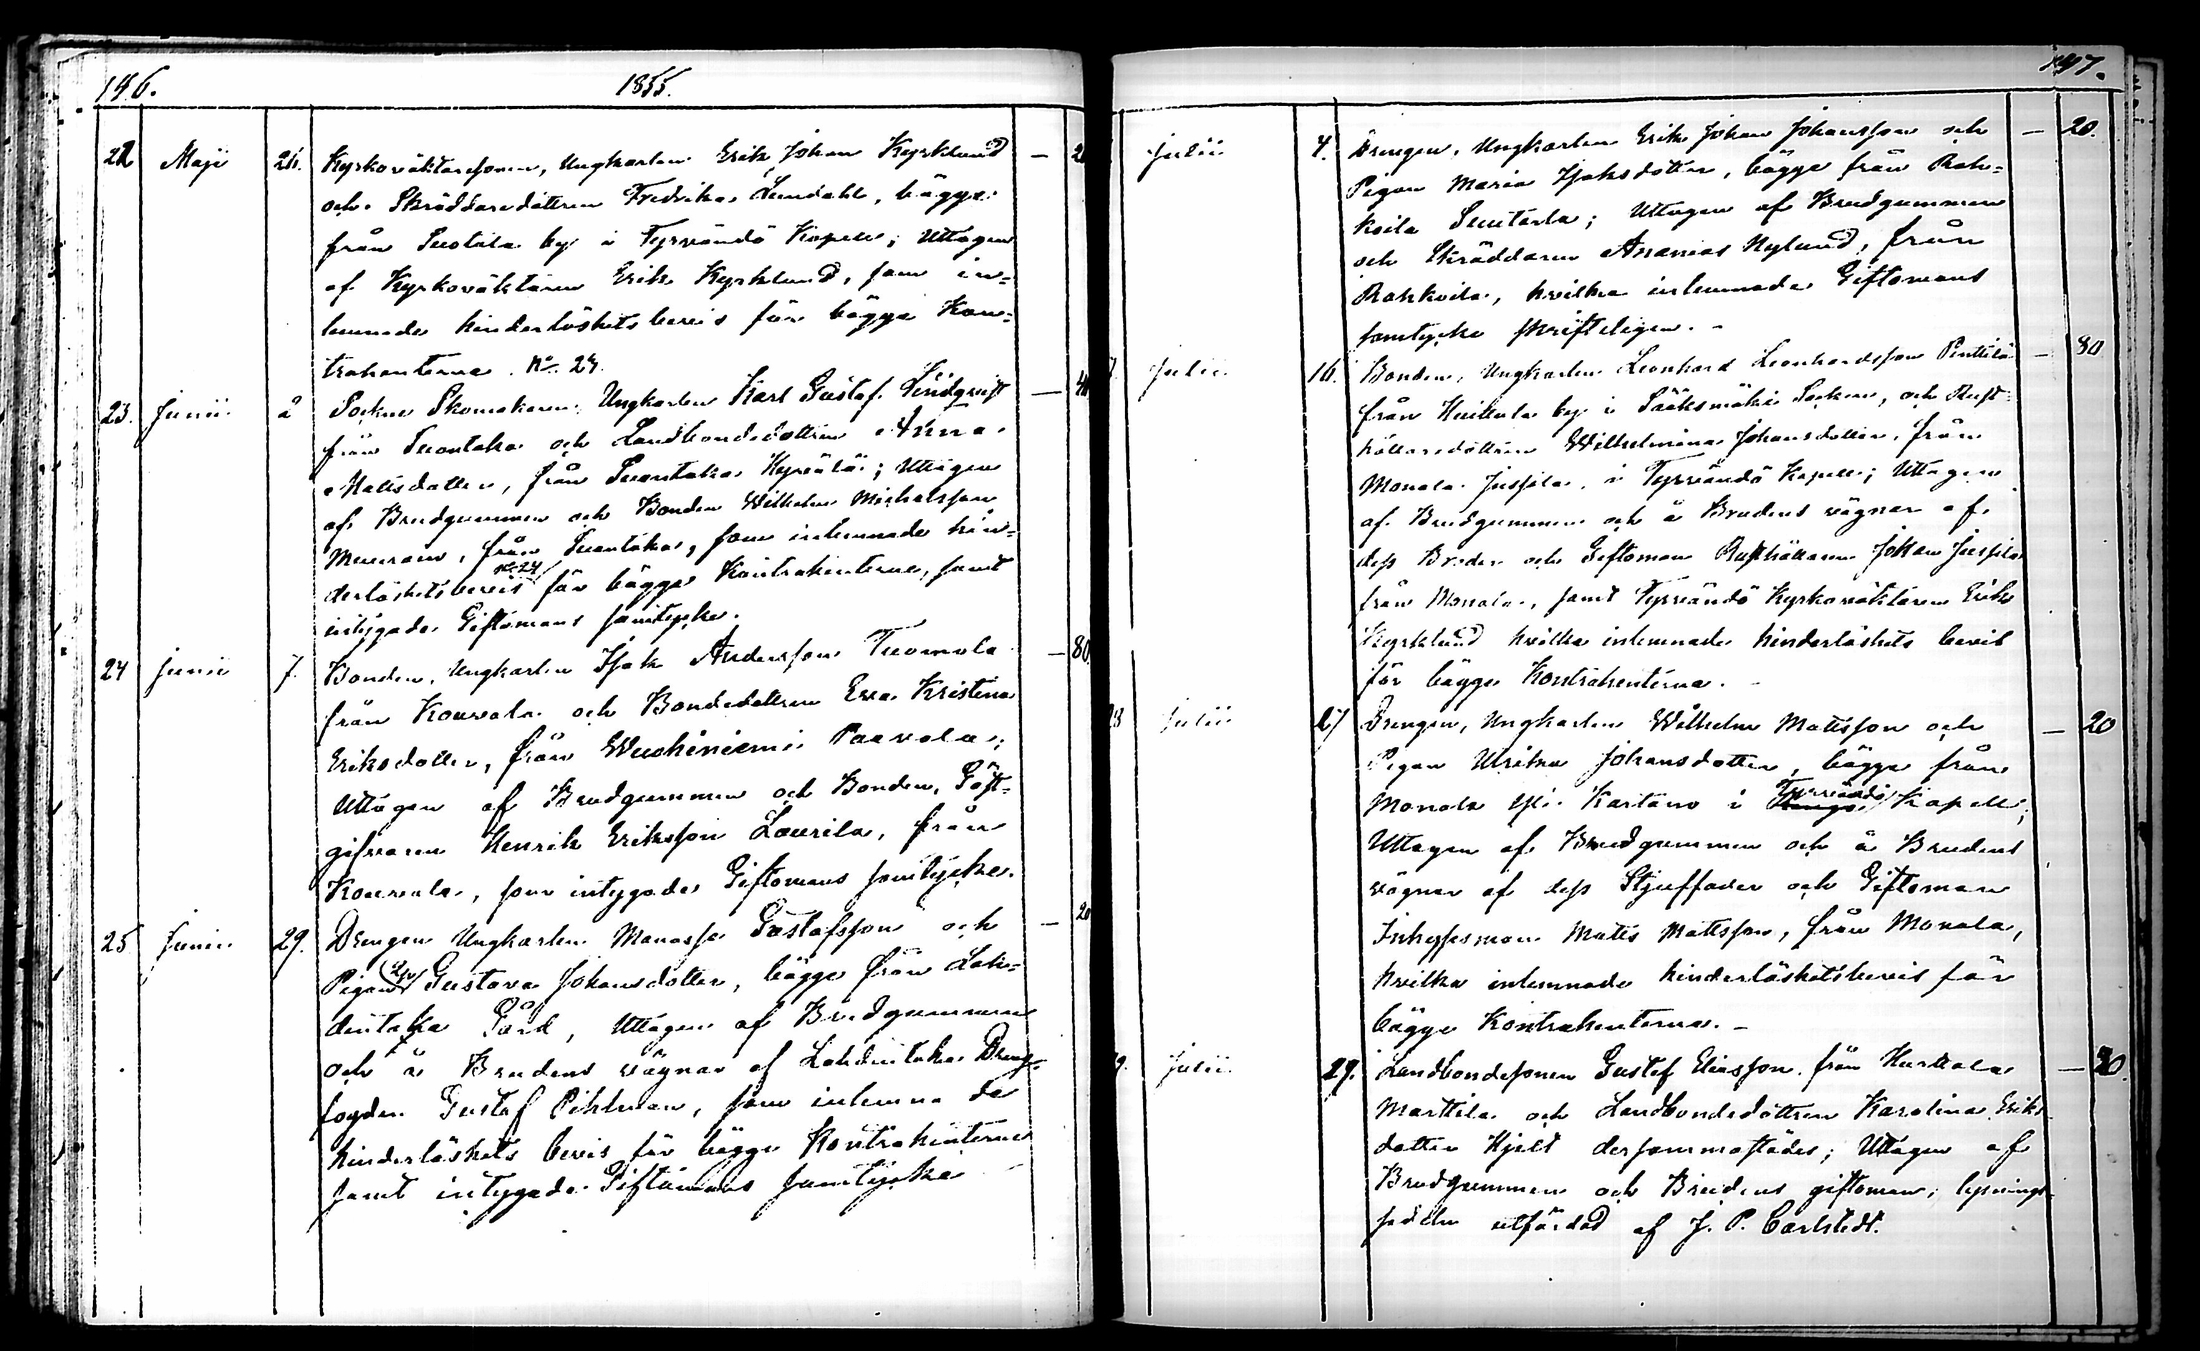 146.
1855.
22 Maji 26. Kyrkováktaresonen, Ungkarlen Erik Johan Kyrklund — 20
och Skräddaredottren Fredrika Lundahl, bägge
från Suotila by i Tyrvändö Kapell; Uttagen
af Kyrkoväktaren Erik Kyrklund, som in=
lemnade hinderlöshetsbevis för bägge Kon=
trahenterna. No. 24.
23. Junii 2 Sockne Skomakaren, Ungkarlen Karl Gustaf Lindqvist — 40
från Suontaka och Landbondedottren Anna
Mattsdotter, från Suontaka Kyrälä; Uttagen
af Brudgummen och Bonden Wilhelm Michelsson
från Suontaka, som inlemnade hin=
derlöshetsbevis No. 24 för bägge Kontrahenterna, samt
intygade Giftomans samtycke.
24 Junii 7. Bonden, Ungkarlen Isak Andersson Tuomola — 80.
från Konvala och Bondedottren Eva Kristina
Eriksdotter, från Wuohiniemi Paavola;
Uttagen af Brudgummen och Bonden, Gäst=
gifvaren Henrik Eriksson Laurila, från
Konvala, som intygade Giftomans samtycke.
25 Junii 29. Drengen Ungkarlen Manasse Gustafsson och — 20
Pigan Gustava Johansdotter, bägge från Lah=
dentaka Gård, Uttagen af Brudgummen
och å Brudens vägnar af Lahdentaka Dreng=
fogden Gustaf Pihlman, som inlemna de
hinderlöshets bevis för bägge Kontrahenterna
samt intygade Giftomans samtycke
147.
Julii 4. Drengen, Ungkarlen Erik Johan Johansson och — 20.
Pigan Maria Isaksdotter, bägge från Rah=
koila Suutarla; Uttagen af Brudgummen
och Skräddaren Ananias Nylund, från
Rahkoila, hvilka inlemnade Giftomans
samtycke skrifteligen. -
Julii 16. Bonden, Ungkarlen Leonhard Leonhardsson Penttilä — 80
från Huittula by i Sääksmäki Socken, och Rust=
hållaredottren Wilhelmina Johansdotter, från
Monala Jussila, i Tyrvändö Kapell; Uttagen
af Brudgummen och å Brudens vägnar af
dess Broder och Giftoman Rusthållaren Johan Jussila
från Monala, samt Tyrvändö Kyrkováktaren Erik
Kyrklund hvilka inlemnade hinderlöshets bevis
för bägge Kontrahenterna. -
28 Julii 27 Drengen, Ungkarlen Wilhelm Mattsson och — 20
Pigan Ulrika Johansdotter, bägge från
Monala Yli Kartano i Tyrvändö Kapell;
Uttagen af Brudgummen och å Brudens
vägnar af dess Stjuffader och Giftoman
Inhyssesman Matts Mattsson, från Monala,
hvilka inlemnade hinderlöshetsbevis för
bägge Kontrahenterna. -
9. Julii 29. Landbondesonen Gustaf Eliasson från Hurttala — 20.
Marttila och Landbondedottren Karolina Eriks
dotter Hjelt dersammastädes; Uttagen af
Brudgummen och Brudens giftoman; lysnings=
sedeln utfärdad af J. P. Carlstedt.